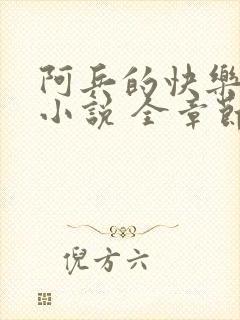 阿兵的快樂
小說 全章節
倪方六